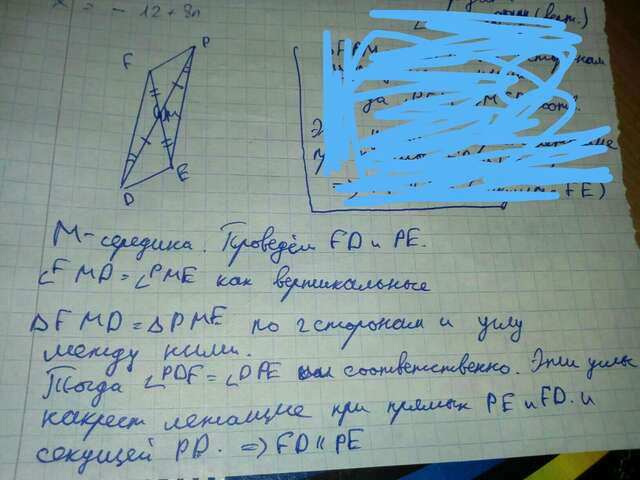 = - 12 + 3n
F
P
M
E
D
FE)
M - середина. Проведём FD и PE.
∠FMD = ∠PME как вертикальные
△FMD = △PME по 2 сторонам и углу
между ними.
Тогда ∠PDF = ∠DPE соответственно. Эти углы
накрест лежащие при прямых PE и FD. и
секущей PD. => FD || PE